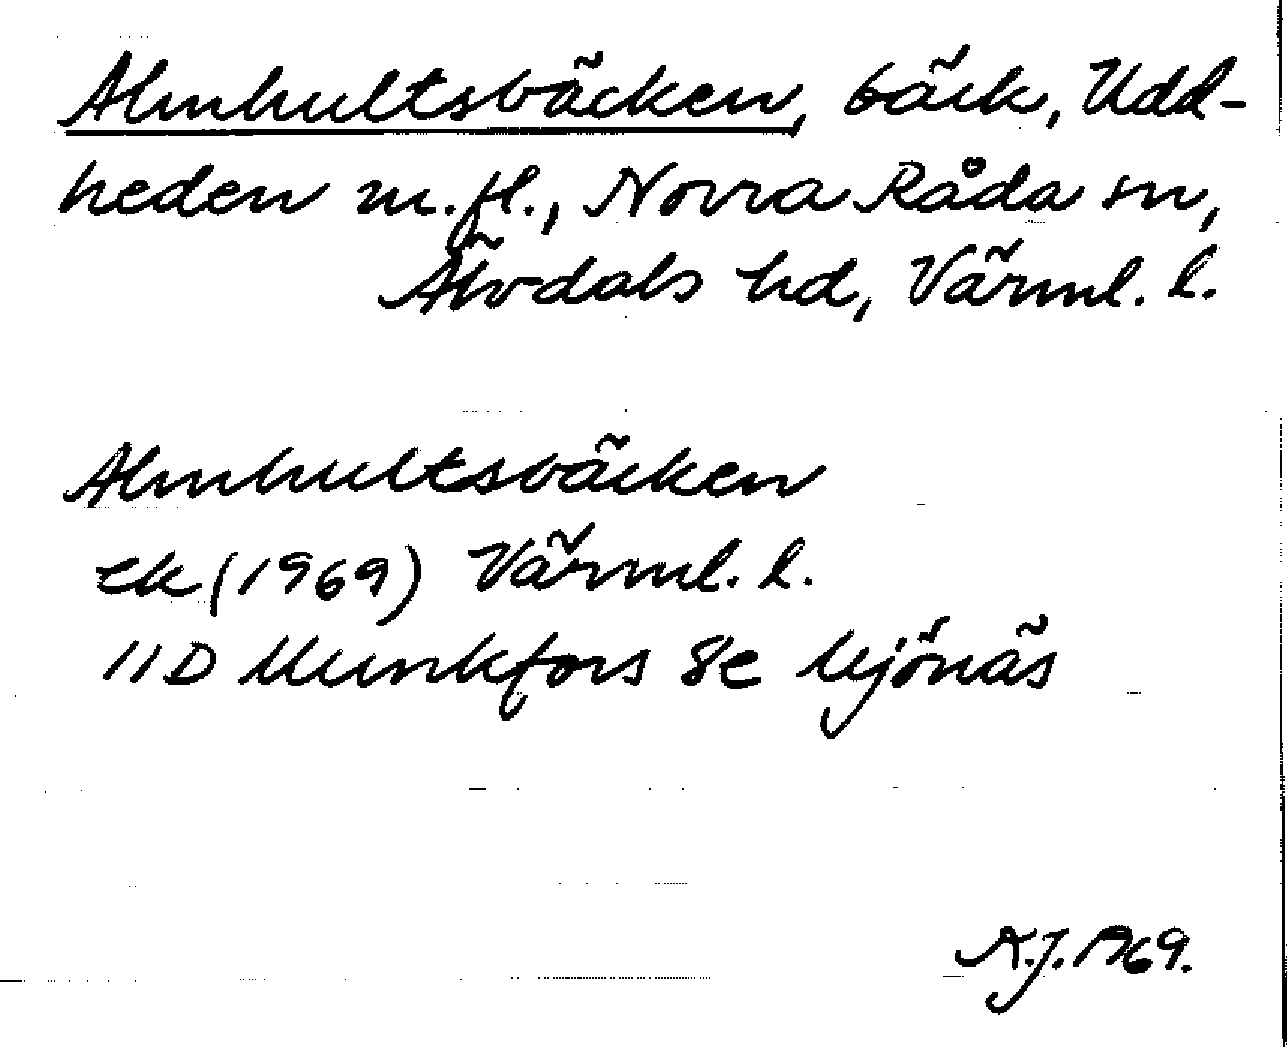 Almhultsbäcken, bäck, Udd-
heden m.fl., Norra Råda sn,
Älvdals hd, Värml. l.
Almhultsbäcken
ek (1969) Värml. l.
11D Munkfors 8e Mjönäs
A.J. 1969.